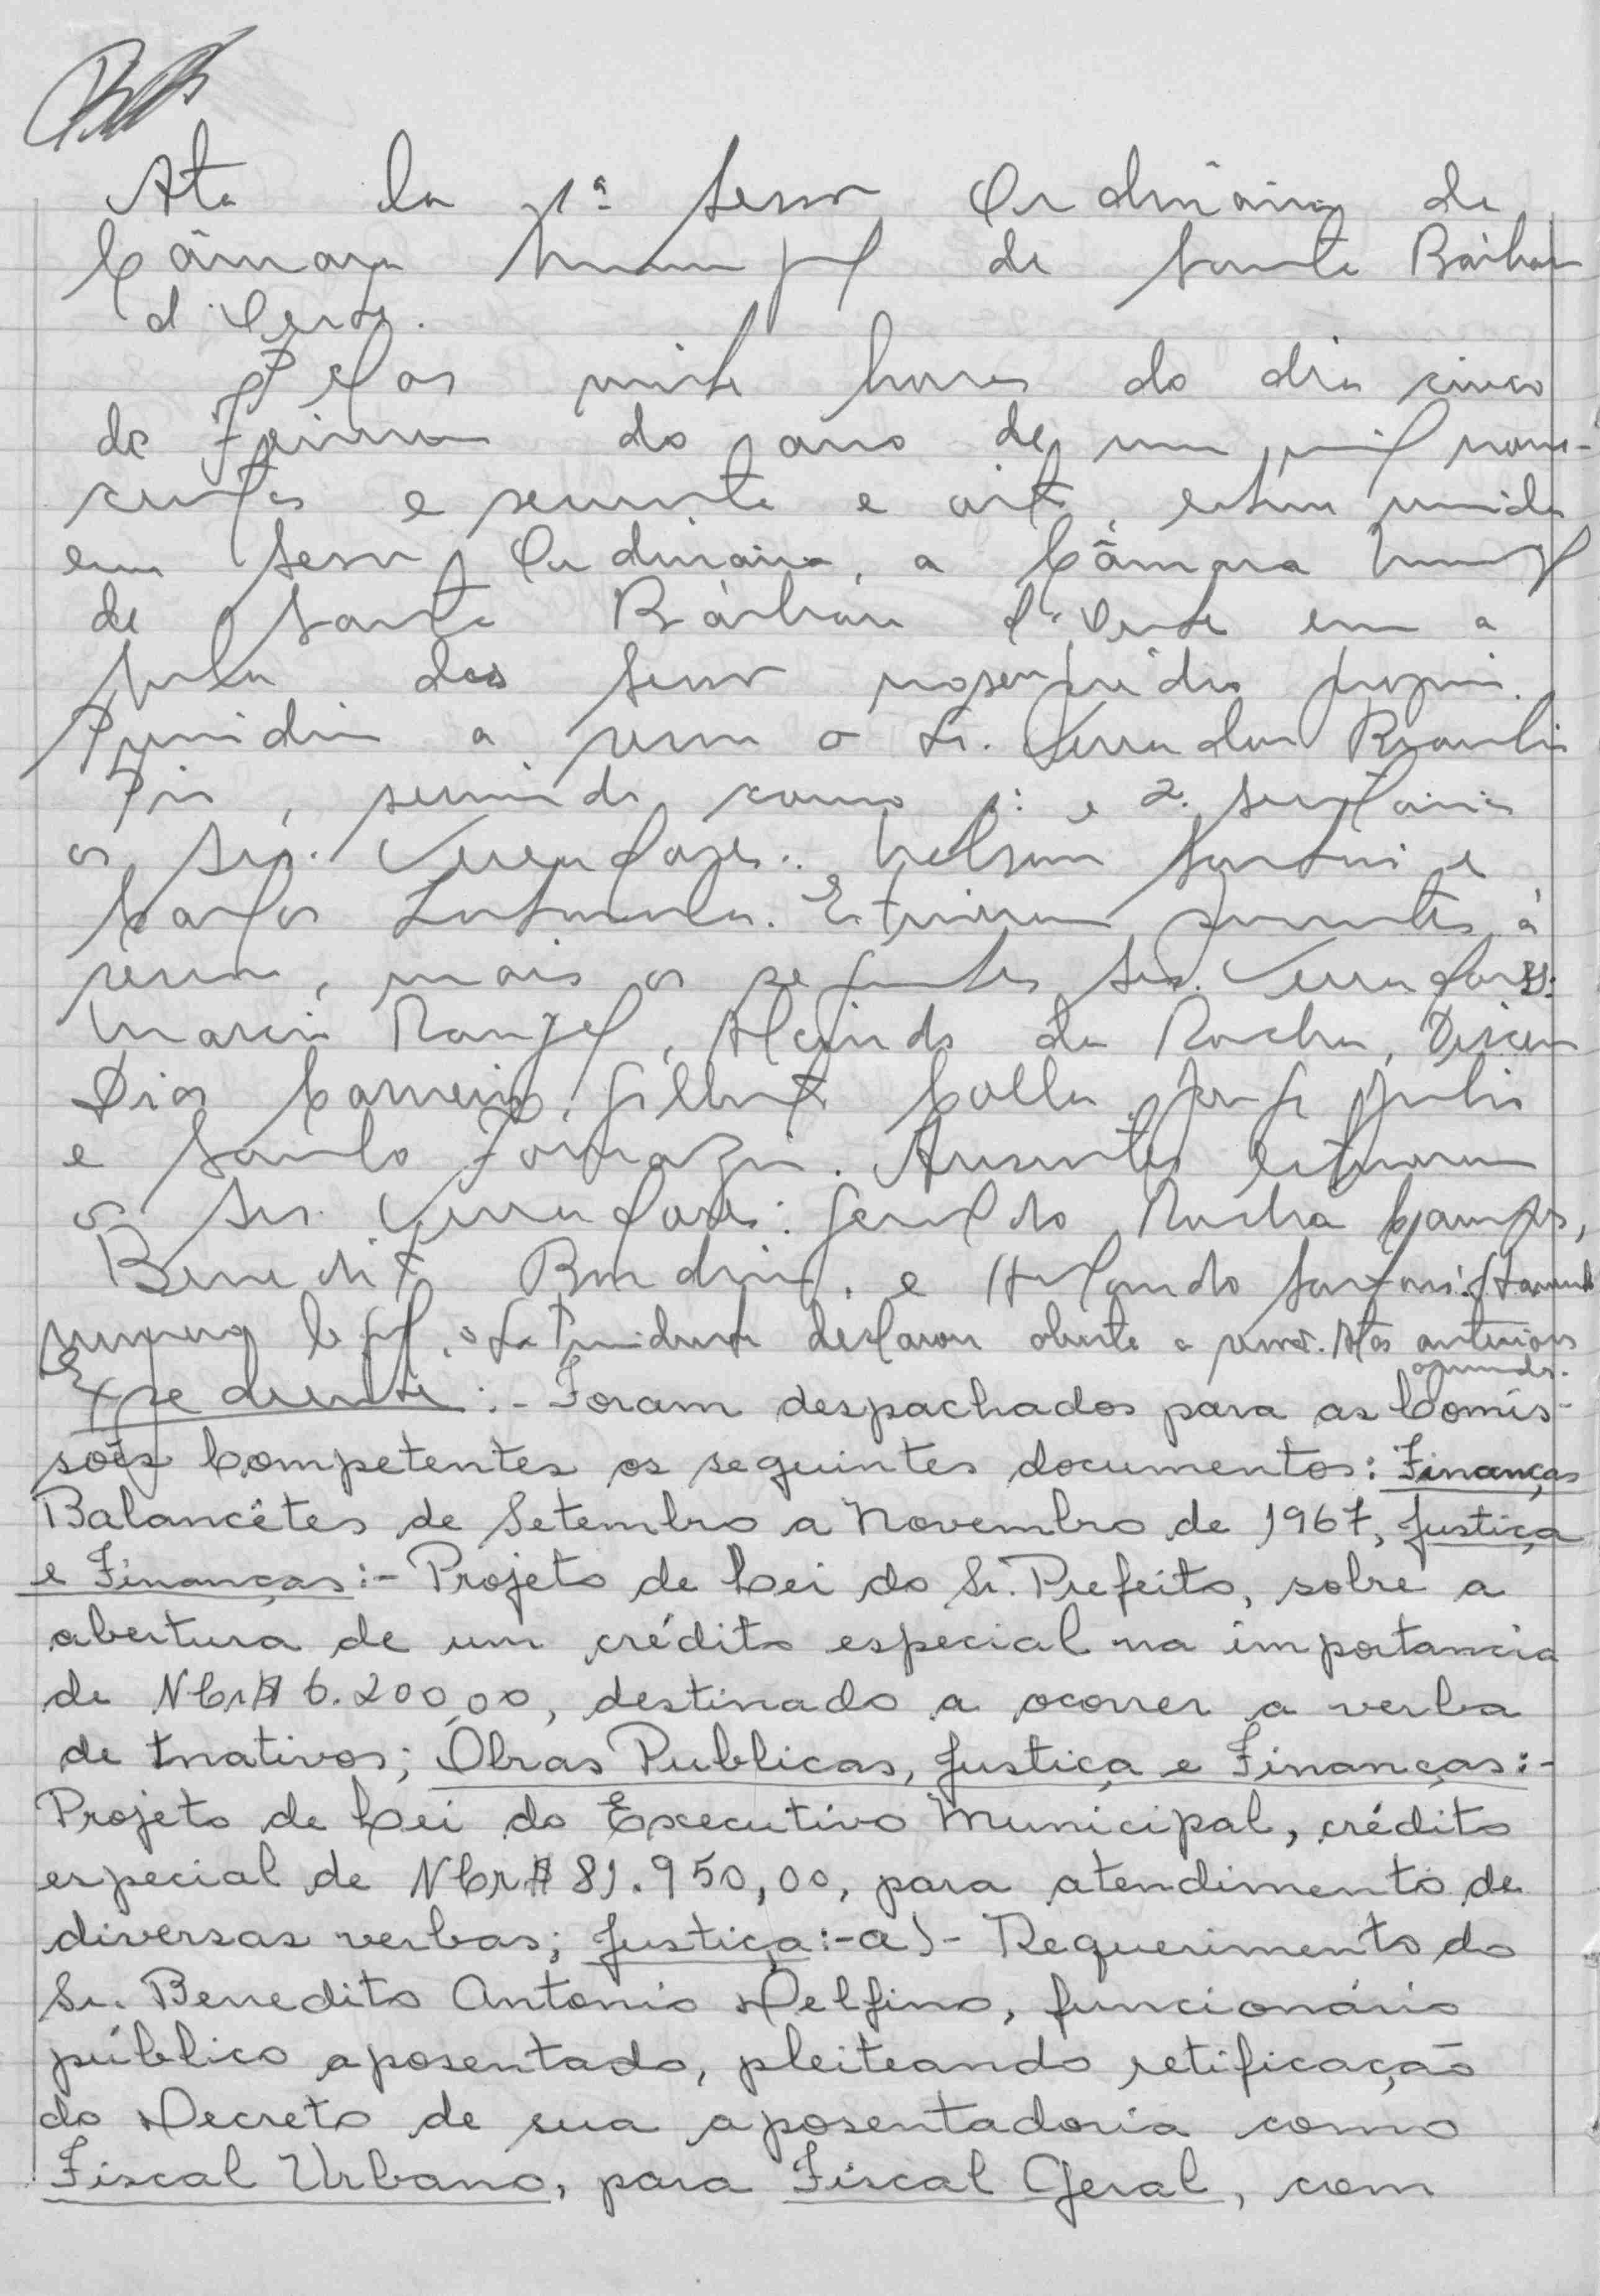 Ata da 1ª Sessão Ordinária da
Câmara Municipal de Santa Bárbara
d'Oeste.
Pelas vinte horas do dia cinco
de Fevereiro do ano de um mil nove-
centos e sessenta e oito, esteve reunida
em Sessão Ordinária, a Câmara Municipal
de Santa Bárbara d'Oeste em a
sala das Sessões no seu prédio próprio.
Presidiu a sessão o Sr. Vereador Braulio
Pio, servindo como 1º e 2º Secretários
os Srs. Vereadores: Nelson Santini e
Carlos Estiveram presentes à
sessão, mais os seguintes Srs. Vereadores:
Marcio Rangel, Alcindo da Rocha, Dirceu
Dias Carneiro, Gilberto Colla, Jorge Julio
e Santo Fornazin. Ausentes estiveram
os Srs. Vereadores: Geraldo Rocha Campos,
Benedito e Orlando Havendo
número legal, o Sr. Presidente declarou aberta a sessão. Atas anteriores
aprovadas.
Expediente:- Foram despachados para as Comis-
sões Competentes os seguintes documentos: Finanças
Balancêtes de Setembro a Novembro de 1967, Justiça
e Finanças:- Projeto de Lei do Sr. Prefeito, sobre a
abertura de um crédito especial na importancia
de NCr$ 6.200,00, destinado a ocorrer a verba
de Inativos; Obras Publicas, Justiça e Finanças:-
Projeto de Lei do Executivo Municipal, crédito
especial de NCr$ 81.950,00, para atendimento de
diversas verbas; Justiça:-a)- Requerimento do
Sr. Benedito Antonio Delfino, funcionário
público aposentado, pleiteando retificação
do Decreto de sua aposentadoria como
Fiscal Urbano, para Fiscal Geral, com